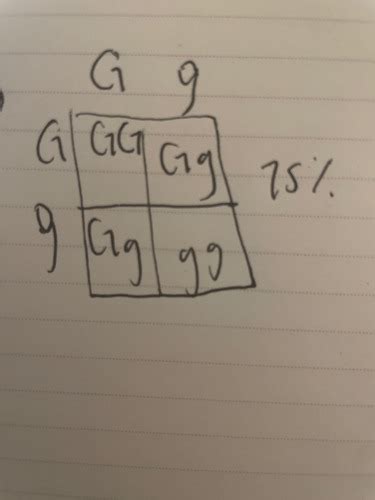 G g
G GG Gg 75%
g Gg gg